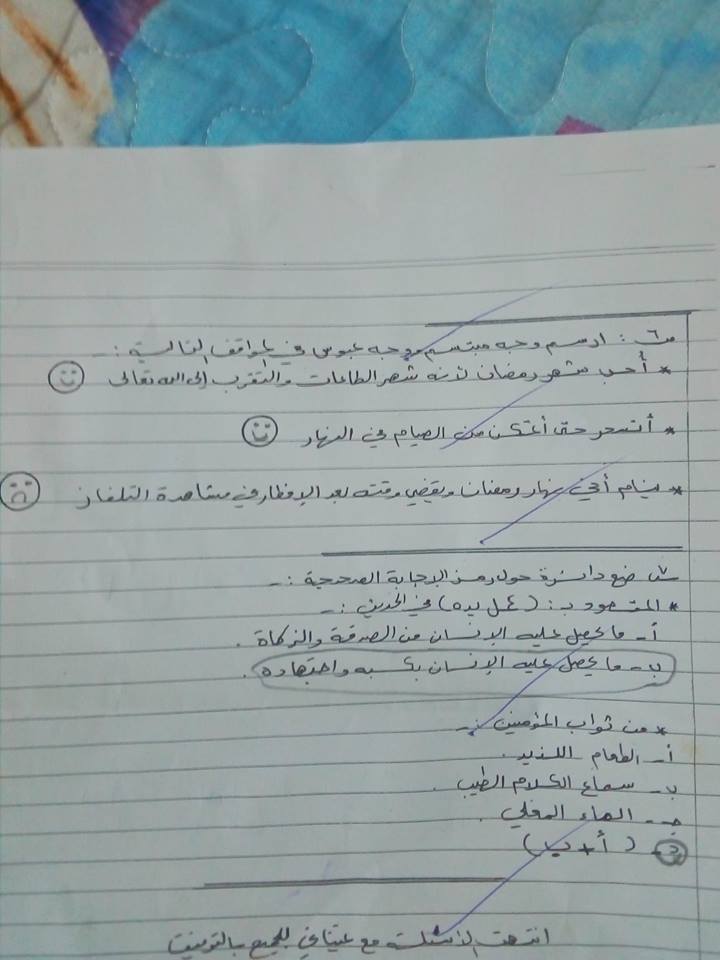 س٦: ارسم وجه مبتسم ووجه عبوس في المواقف التالية :-
* أحب شهر رمضان لأنه شهر الطاعات والتقرب إلى الله تعالى
* أتسحر حتى أتمكن من الصيام في النهار
* ينام أخي نهار رمضان ويقضي وقته بعد الإفطار في مشاهدة التلفاز
ضع دائرة حول رمز الإجابة الصحيحة :-
* المقصود بـ : (عمل يده) في الحديث :-
أ- ما يحصل عليه الإنسان من الصدقة والزكاة .
ب- ما يحصل عليه الإنسان بكسبه واجتهاده .
* من ثواب المؤمنين :-
أ- الطعام اللذيذ .
ب- سماع الكلام الطيب .
جـ- الماء المغلي .
د- ( أ + ب )
انتهت الأسئلة مع تمنياتي للجميع بالتوفيق